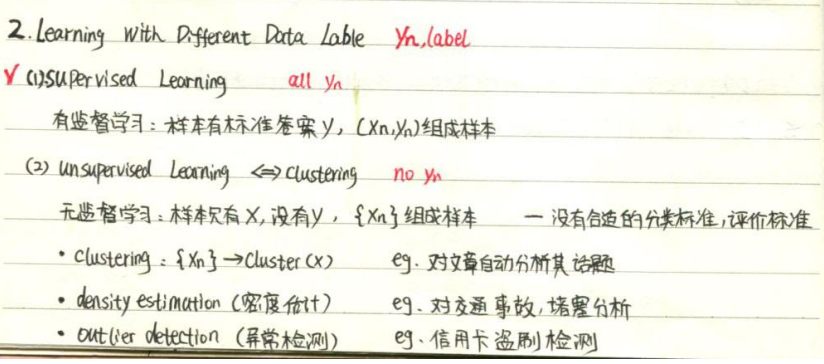 2. Learning With Different Data Lable yn,label
√ (1) supervised Learning all yn
有监督学习：样本有标准答案y，(xn,yn)组成样本
(2) unsupervised Learning <=> clustering no yn
无监督学习：样本只有x,没有y，{xn}组成样本 — 没有合适的分类标准,评价标准
• clustering : {xn}→cluster(x) eg. 对文章自动分析其话题
• density estimation (密度估计) eg. 对交通事故,堵塞分析
• outlier detection (异常检测) eg. 信用卡盗刷检测